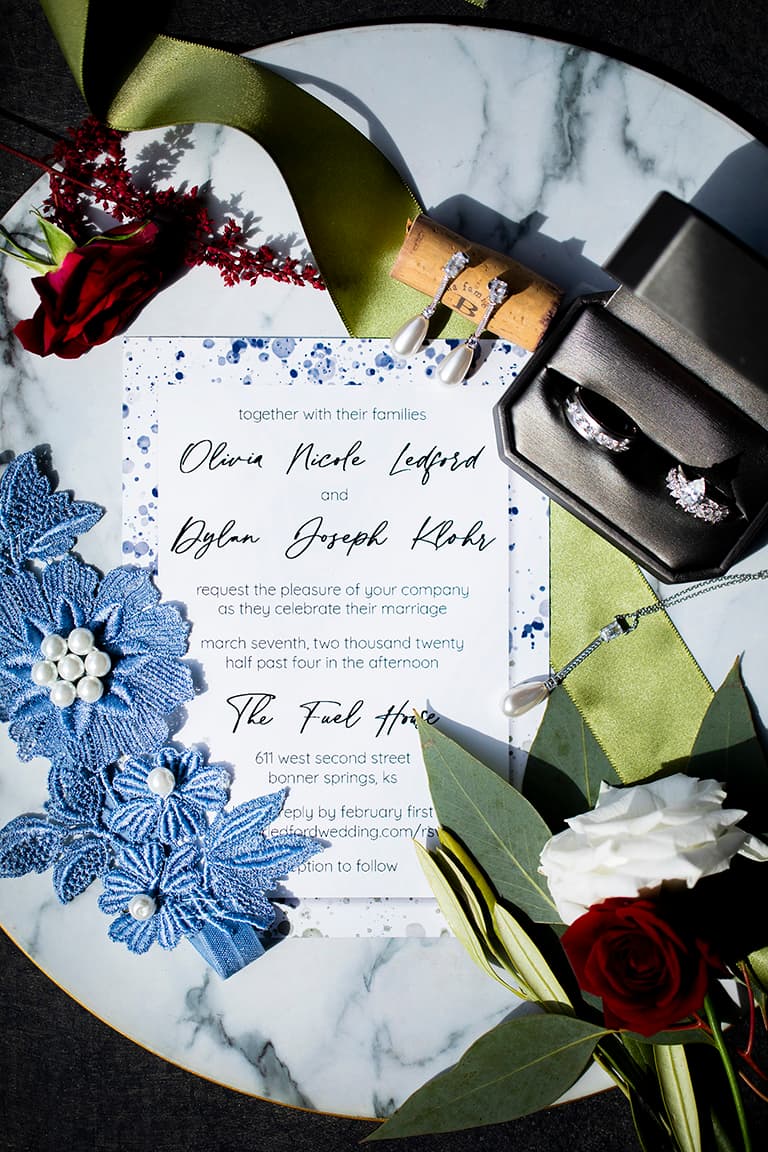 B
together with their families
Olivia Nicole Ledford
and
Dylan Joseph Klohr
request the pleasure of your company
as they celebrate their marriage
march seventh, two thousand twenty
half past four in the afternoon
The Fuel House
611 west second street
bonner springs, ks
reply by february first
to follow